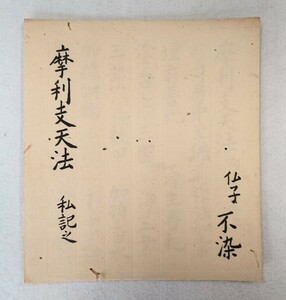 摩利支天法 私記之
仏子 不染